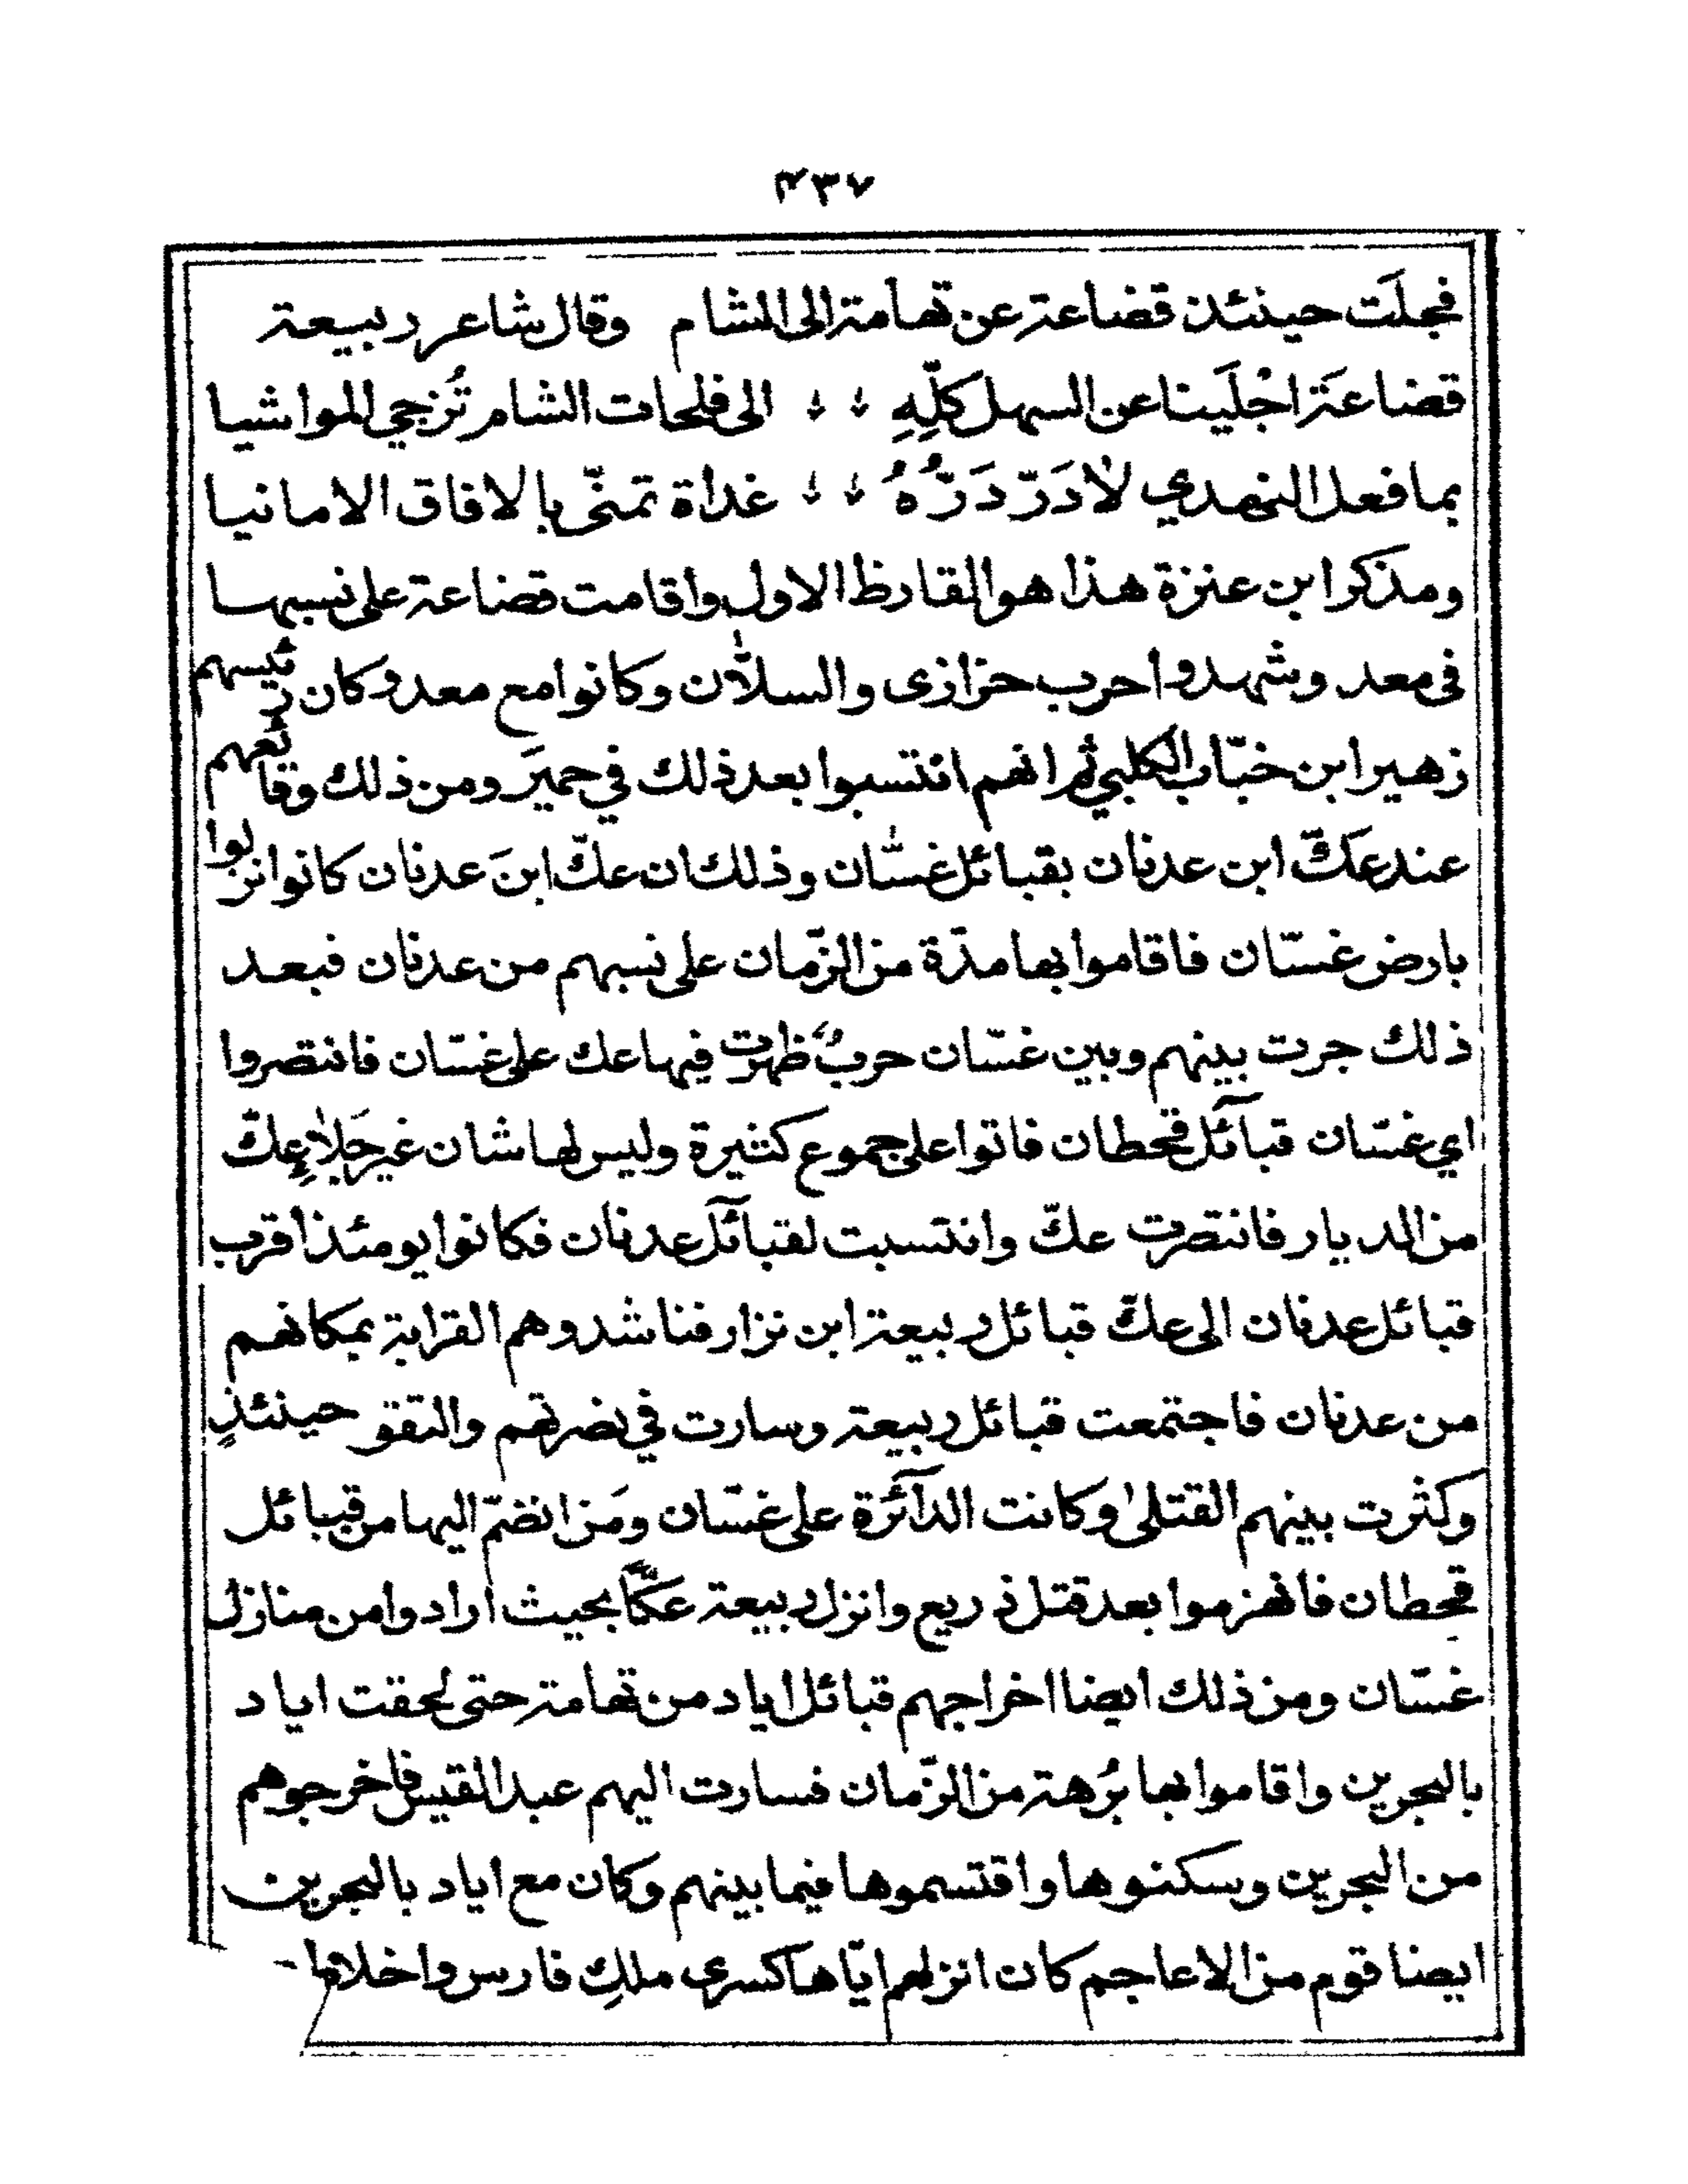 ۴۳۷
فجلَت حينئذ قضاعة عن تهامة الى الشام وقال شاعر ربيعة
قضاعَة اجْلَينا عن السهل كلِّهِ الى فلجات الشام تُزجي المواشيا
بما فعل النهدي لا دَرّ دَرُّهُ غداة تمنّى بالافاق الامانيا
ومذكر ابن عنزة هذا هو القارظ الاول واقامت قضاعة على نسبها
فى معد وشهدوا حرب خزازى والسلّان وكانوا مع معد وكان رئيسهم
زهير ابن خبّاب الكلبي ثم انهم انتسبوا بعد ذلك في حميَر ومن ذلك وقائعهم
عند عكّ ابن عدنان بقبائل غسّان وذلك ان عكّ ابنَ عدنان كانوا نزلوا
بارض غسّان فاقاموا بها مدّة من الزّمان على نسبهم من عدنان فبعد
ذلك جرت بينهم وبين غسّان حربٌ ظهرت فيها عك على غسّان فانتصروا
اي غسّان قبآئل قحطان فاتوا على جموع كثيرة وليس لها شان غير جَلاءِ عكّ
من الديار فانتصرت عكّ وانتسبت لقبآئل عدنان فكانوا يومئذ اقرب
قبائل عدنان الى عكّ قبائل ربيعة ابن نزار فناشدوهم القرابة بمكانهم
من عدنان فاجتمعت قبائل ربيعة وسارت في نصرتهم والتقو حينئذٍ
وكثرت بينهم القتلىٰ وكانت الدآئرة على غسّان ومَن انضمّ اليها من قبائل
قحطان فانهزموا بعد قتل ذريع وانزل ربيعة عكّاً بحيث ارادوا من منازل
غسّان ومن ذلك ايضا اخراجهم قبائل اياد من تهامة حتى لحقت اياد
بالبحرين واقاموا بها بُرهة من الزّمان فسارت اليهم عبد القيس فاخرجوهم
من البحرين وسكنوها واقتسموها فيما بينهم وكان مع اياد بالبحرين
ايضا قوم من الاعاجم كان انزلهم ايّاها كسرى ملكِ فارس واخلاطا